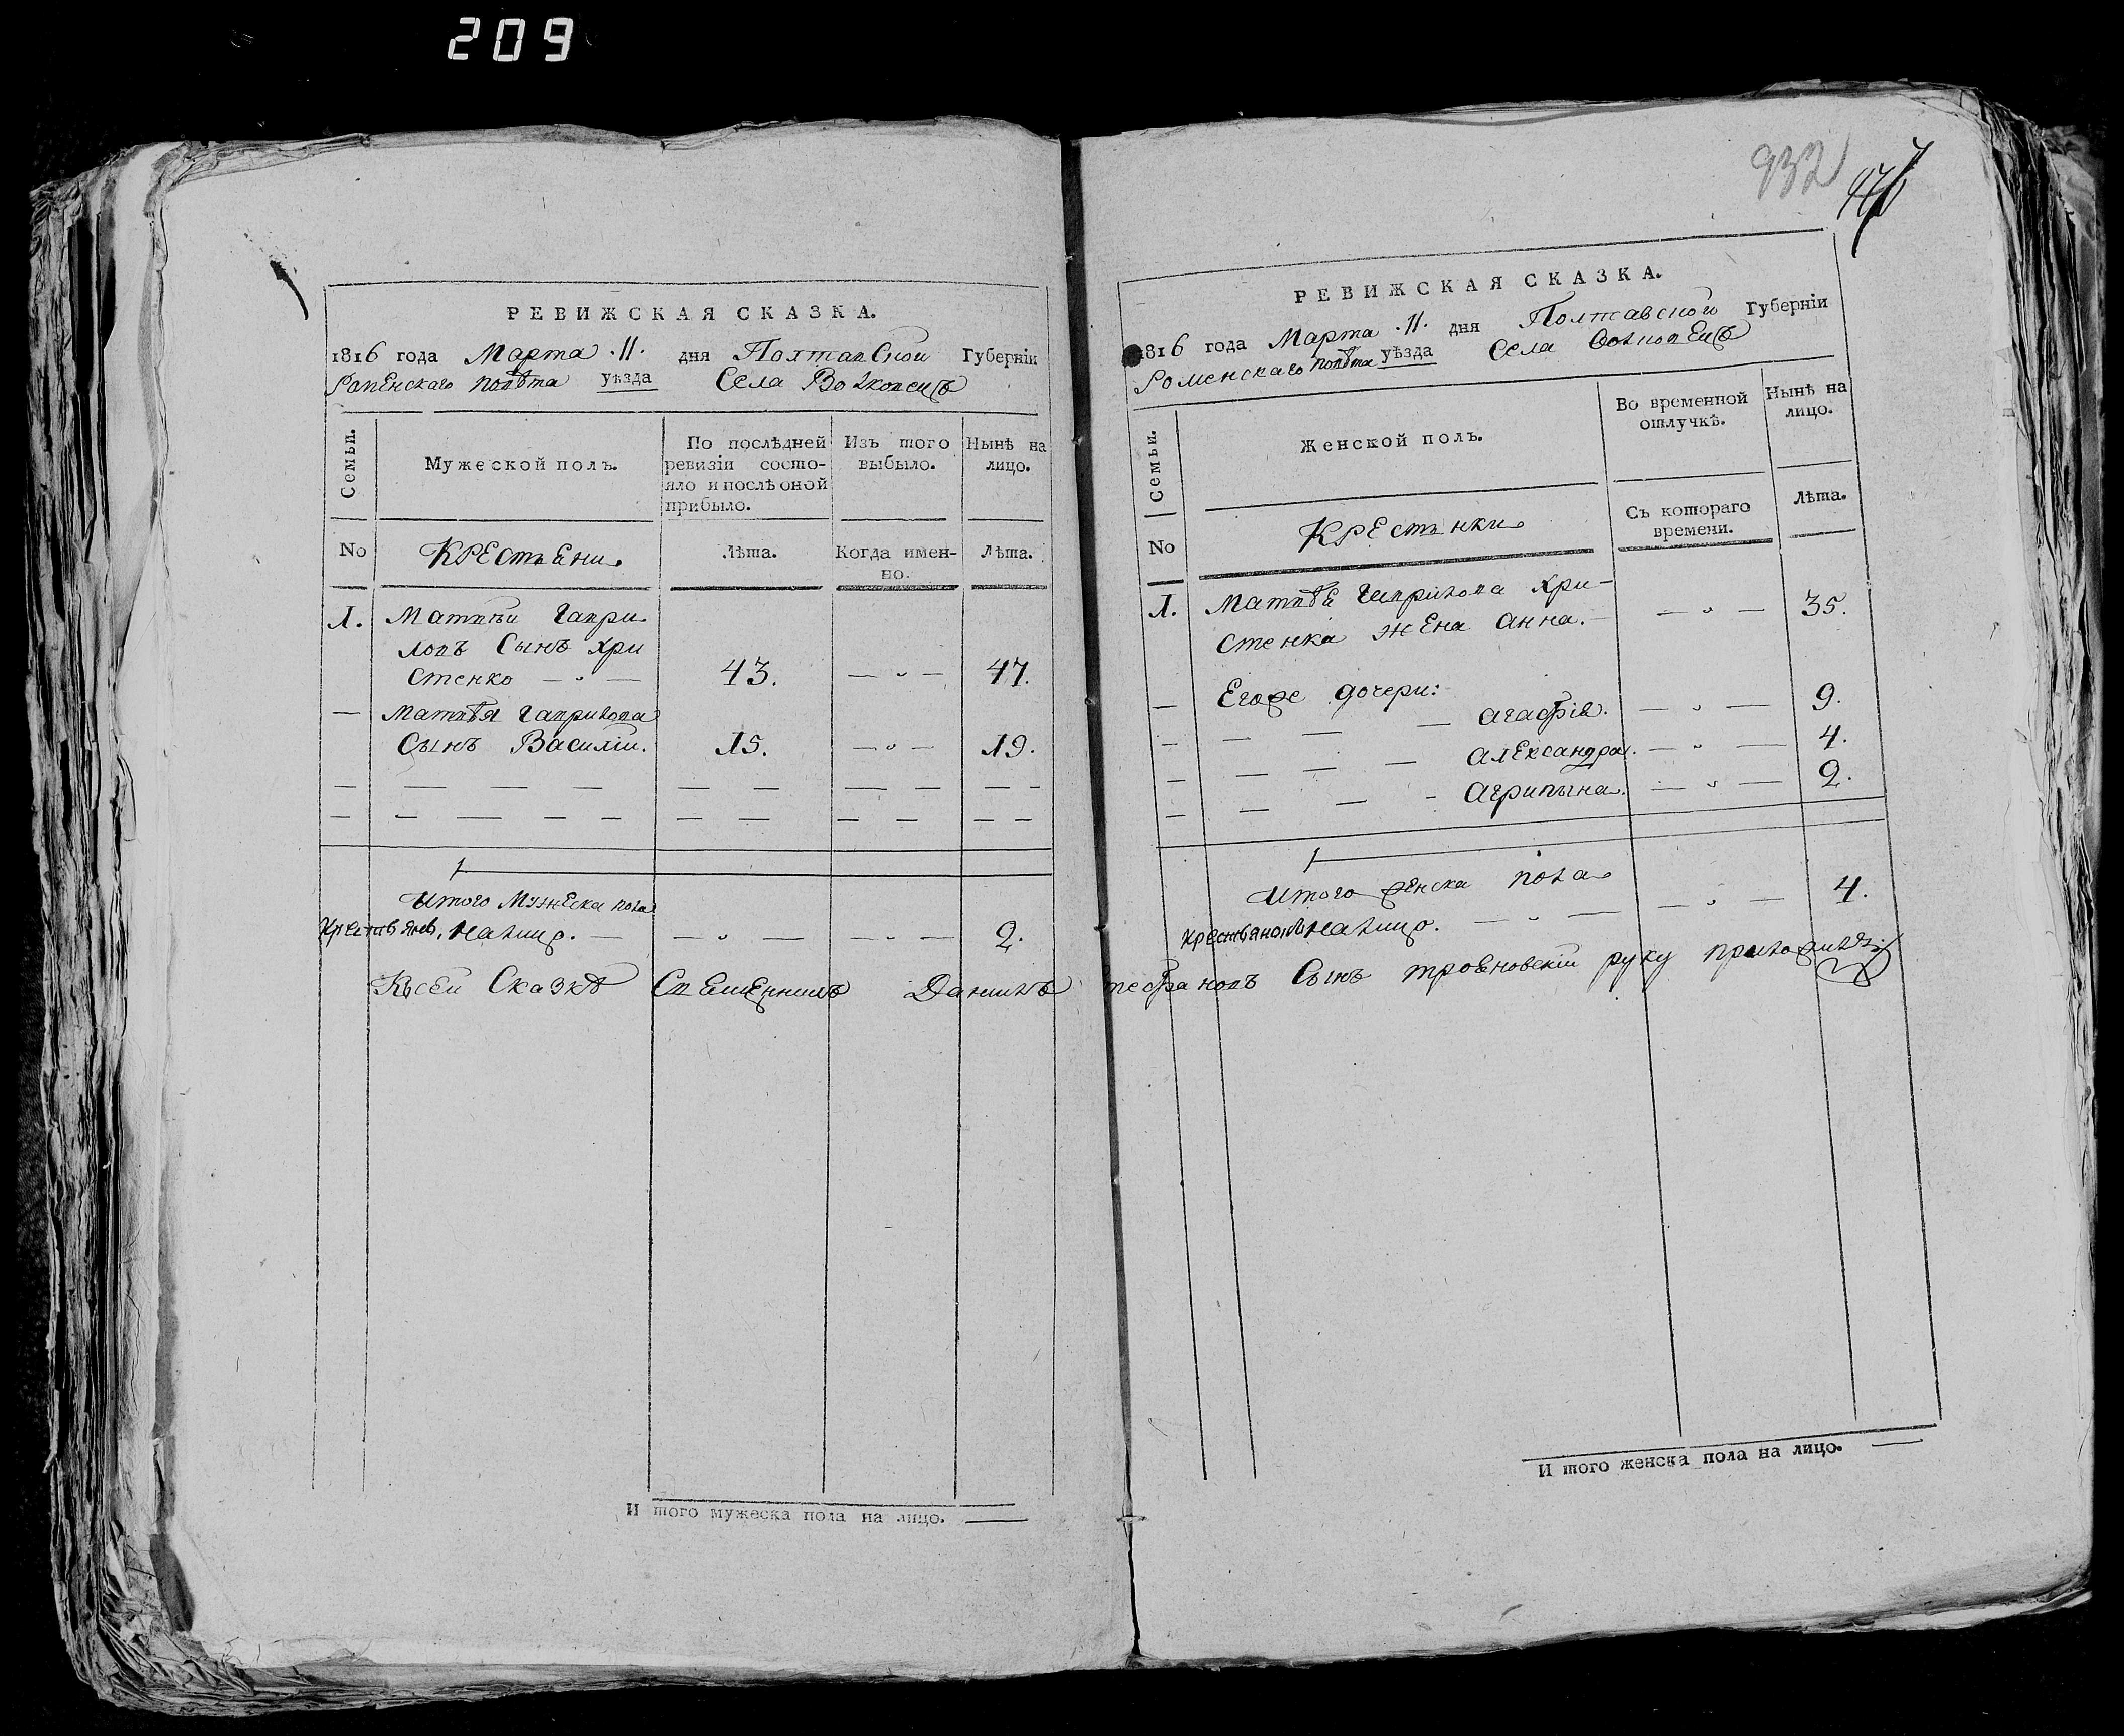 209
932
РЕВИЖСКАЯ СКАЗКА.
1816 года Марта .11. дня Полтавской Губерніи
Роменскаго повѣта уѣзда Села Волковецъ
Семьи.
Мужеской полъ.
По послѣдней ревизіи состояло и послѣ оной прибыло.
Изъ того выбыло.
Нынѣ на лицо.
No
Крестьяни
Лѣта.
Когда именно.
Лѣта.
1. Матвѣй Гаври
ловъ Сынъ Хри
стенко 43. 47.
Матвѣя Гаврилова
Сынъ Василій. 15. 19.
Итого Мужеска пола
крестьянъ, налицо. 2.
РЕВИЖСКАЯ СКАЗКА.
1816 года Марта .11. дня Полтавской Губерніи
Роменскаго повѣта уѣзда Села Волковецъ
Семьи.
Женской полъ.
Во временной отлучкѣ.
Нынѣ на лицо.
No
Крестьнки
Съ котораго времени.
Лѣта.
1. Матвѣя Гаврилова Хри-
стенка жена Анна. 35.
Егоже дочери:
Агафія. 9.
Александра. 4.
Агрипына. 2.
Итого женска пола
налицо. 4.
Ксей Сказкѣ Священникъ Данилъ Стефановъ Сынъ руку приложилъ
И того мужеска пола на лицо.
И того женска пола на лицо.